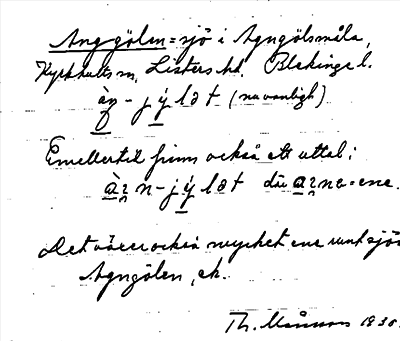 Anggölen = sjö i Agngölsmåla,
Kyrkhults sn, Listers hd. Blekinge l.
àŋ - j ý l ə t (nu vanligt)
Emellertid finns också ett uttal:
àɂ n - j ý l ə t där aɂne = ene.
Det växer också mycket ene runt sjön
Agngölen, ek.
Th. Månsson 1938.